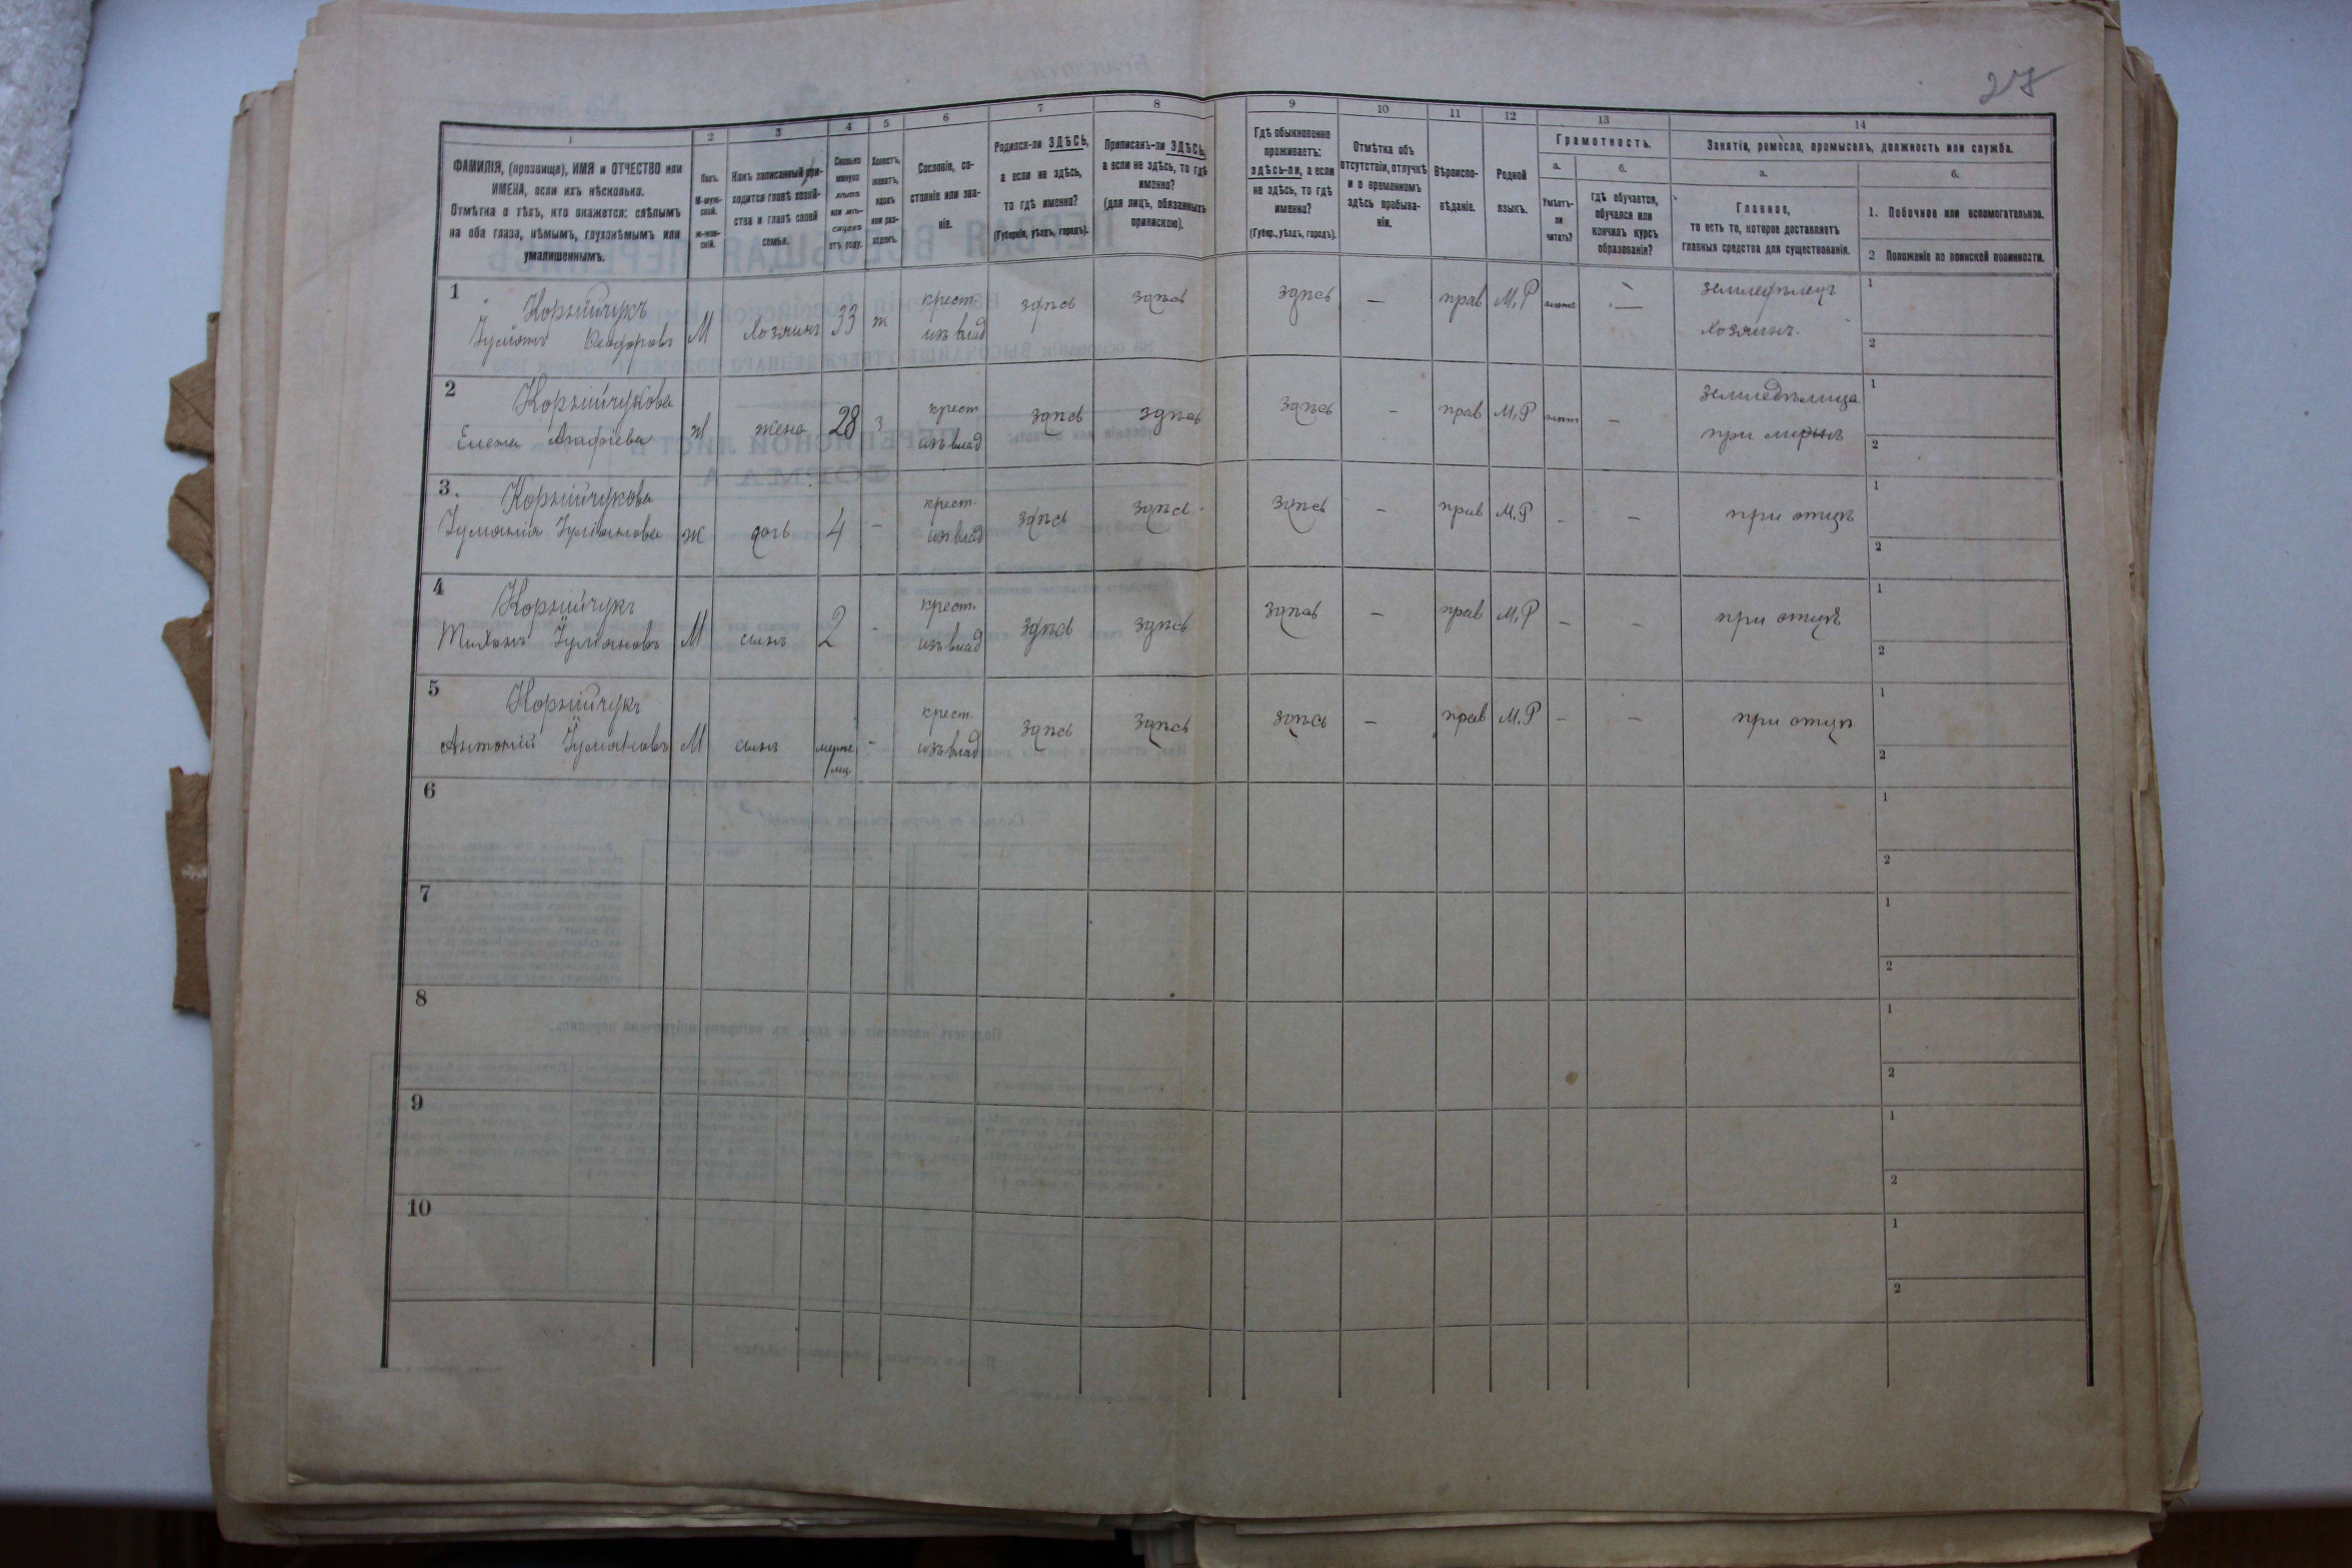 27
1 2 3 4 5 6 7 8 9 10 11 12 13 14
ФАМИЛІЯ, (прозвище), ИМЯ и ОТЧЕСТВО или
ИМЕНА, если ихъ нѣсколько.
Отмѣтка о тѣхъ, кто окажется: слѣпымъ
на оба глаза, нѣмымъ, глухонѣмымъ или
умалишеннымъ.
Полъ.
М-муж-
ской.
Ж-жен-
скій.
Какъ записанный при-
ходится главѣ хозяй-
ства и главѣ своей
семьи.
Сколько
минуло
лѣтъ
или мѣ-
сяцевъ
отъ роду.
Холостъ,
женатъ,
вдовъ
или раз-
веденъ.
Сословіе, со-
стояніе или зва-
ніе.
Родился-ли ЗДѢСЬ,
а если не здѣсь,
то гдѣ именно?
(Губернія, уѣздъ, городъ).
Приписанъ-ли ЗДѢСЬ,
а если не здѣсь, то гдѣ
именно?
(для лицъ, обязанныхъ
припискою).
Гдѣ обыкновенно
проживаетъ:
здѣсь-ли, а если
не здѣсь, то гдѣ
именно?
(Губер., уѣздъ, городъ).
Отмѣтка объ
отсутствіи, отлучкѣ
и о временномъ
здѣсь пребыва-
ніи.
Вѣроиспо-
вѣданіе.
Родной
языкъ.
Грамотность.
а. б.
Умѣетъ-
ли
читать?
Гдѣ обучается,
обучался или
кончилъ курсъ
образованія?
Занятіе, ремесло, промыселъ, должность или служба.
а. б.
Главное,
то есть то, которое доставляетъ
главныя средства для существованія.
1. Побочное или вспомогательное.
2 Положеніе по воинской повинности.
1 Корнійчукъ крест. здѣсь здѣсь здѣсь — прав М.Р — земледѣлецъ 1
Іуліанъ Ѳеодоровъ М хозяинъ 33 ж изъ влад хозяинъ. 2
2 Корнійчукова крест здѣсь здѣсь здѣсь - прав М.Р - земледѣлица 1
Елена Агафіева Ж жена 28 з изъ влад при 2
3. Корнійчукова крест. здѣсь здѣсь здѣсь - прав М.Р - - при отцѣ 1
Іуліанова ж дочь 4 - изъ влад 2
4 Корнійчукъ крест. здѣсь здѣсь здѣсь - прав М.Р - - при отцѣ 1
Тихонъ Іуліановъ М сынъ 2 - изъ влад 2
5 Корнійчукъ крест. здѣсь здѣсь здѣсь - прав М.Р - - при отцѣ 1
Антоній Іуліановъ М сынъ - изъ влад 2
6 1
2
7 1
2
8 1
2
9 1
2
10 1
2